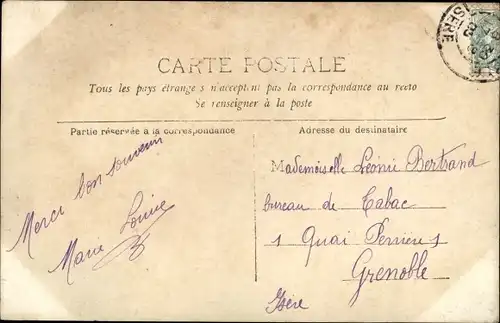 ISERE
CARTE POSTALE
Tous les pays étrangers n'acceptent pas la correspondance au recto
Se renseigner à la poste
Partie réservée à la correspondance
Adresse du destinataire
Merci bon souvenir
Marie Louise
Mademoiselle Léonie Bertrand
bureau de Tabac
1 Quai Perrière 1
Grenoble
Isère